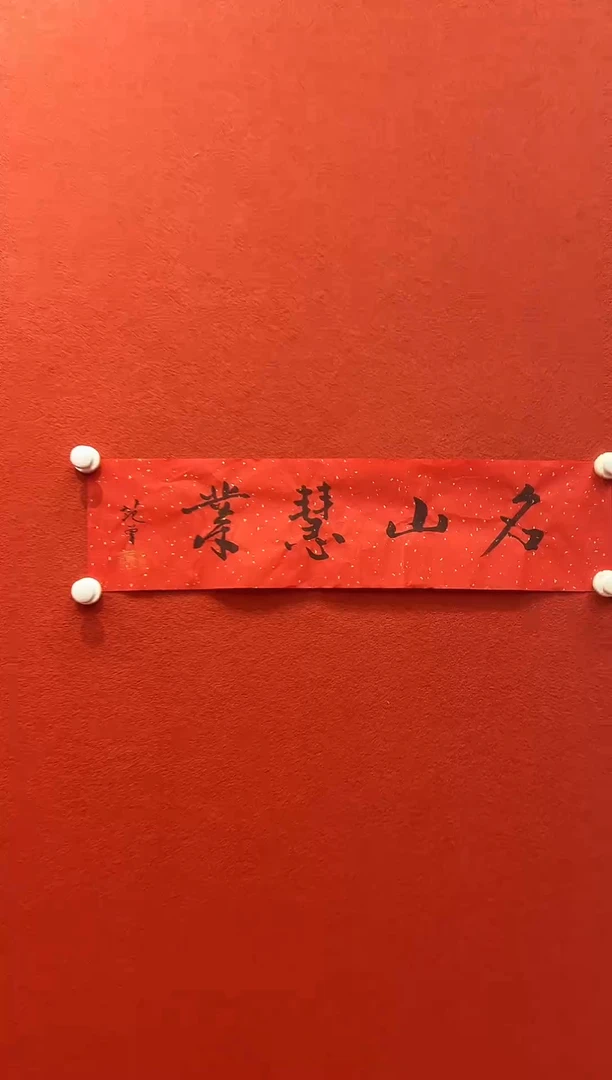 名山慧業